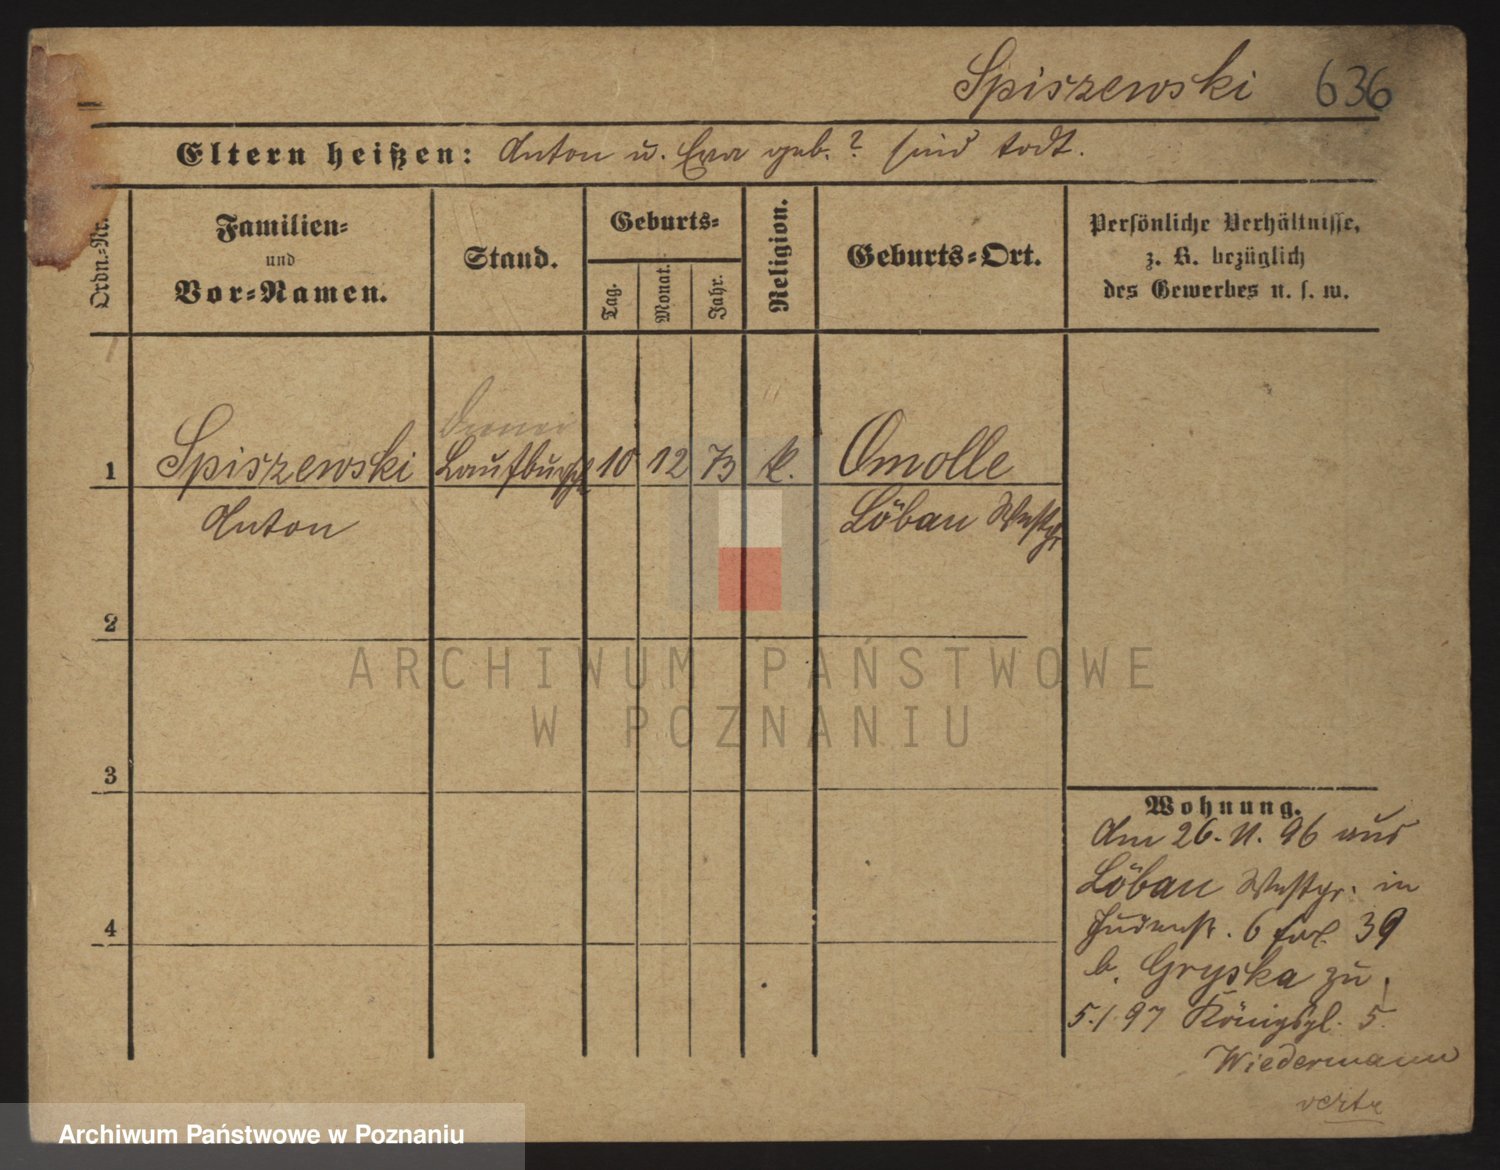 Spiszewski 636
Eltern heißen: Anton u. Eva geb. ? sind todt.
Ordn.-Nr.
Familien-
und
Vor-Namen.
Stand.
Geburts-
Tag.
Monat.
Jahr.
Religion.
Geburts-Ort.
Persönliche Verhältnisse,
z. B. bezüglich
des Gewerbes u. s. w.
1 Spiszewski Laufbursche 10 12 73 k. Omolle
Anton Löbau Westpr
2
3
4
Wohnung.
Am 26. 11. 96 aus
Löbau Westpr. in
Judenstr. 6 39
b. Gryska zu
5./1 97 Königspl. 5.
Wiedermann
verte
ARCHIWUM PAŃSTWOWE
W POZNANIU
Archiwum Państwowe w Poznaniu